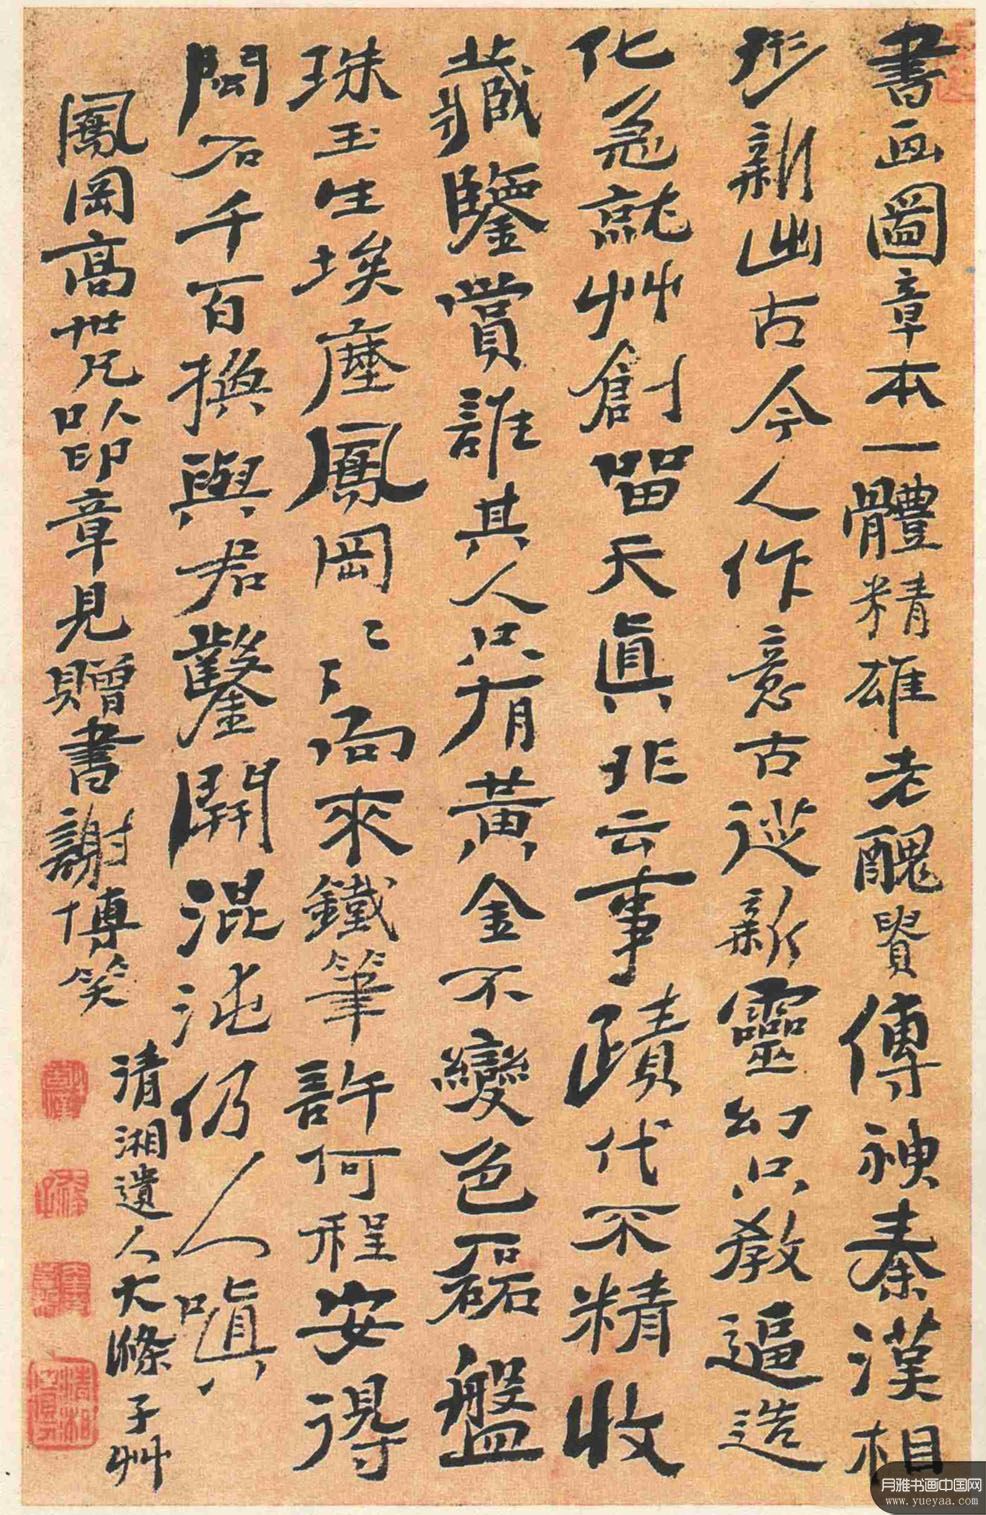 書画圖章本一體精雄老醜貴傳神秦漢相
形新出古今人作意古從新靈幻只教逼造
化急就艸創留天真非云事蹟代不精收
藏鑒賞誰其人只有黃金不變色磊盤
珠玉生埃塵鳳岡鳳岡向來鐵筆許何程安得
閩石千百換與君鑿開混沌仍人嗔
鳳岡高世兄以印章見贈書謝博笑
清湘遺人大滌子艸
月雅书画中国网
www.yueyaa.com